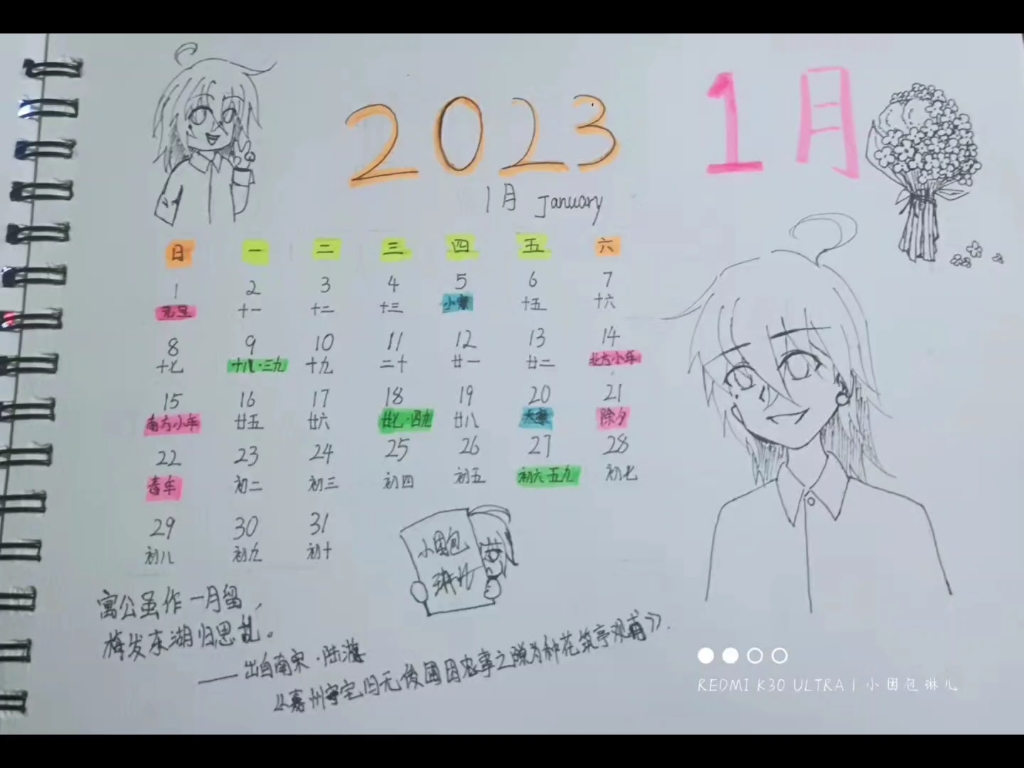 2023
1月
1月 January
日 一 二 三 四 五 六
1 2 3 4 5 6 7
元旦 十一 十二 十三 小寒 十五 十六
8 9 10 11 12 13 14
十七 十八·三九 十九 二十 廿一 廿二 北方小年
15 16 17 18 19 20 21
南方小年 廿五 廿六 廿七·四九 廿八 大寒 除夕
22 23 24 25 26 27 28
春年 初二 初三 初四 初五 初六·五九 初七
29 30 31
初八 初九 初十
小团包
琳儿
寓公虽作一月留,
梅发东湖归思乱。
——出自南宋·陆游
《嘉州守宅旧无后园因农事之隙为种花筑亭观甫》.
REDMI K30 ULTRA | 小团包琳儿